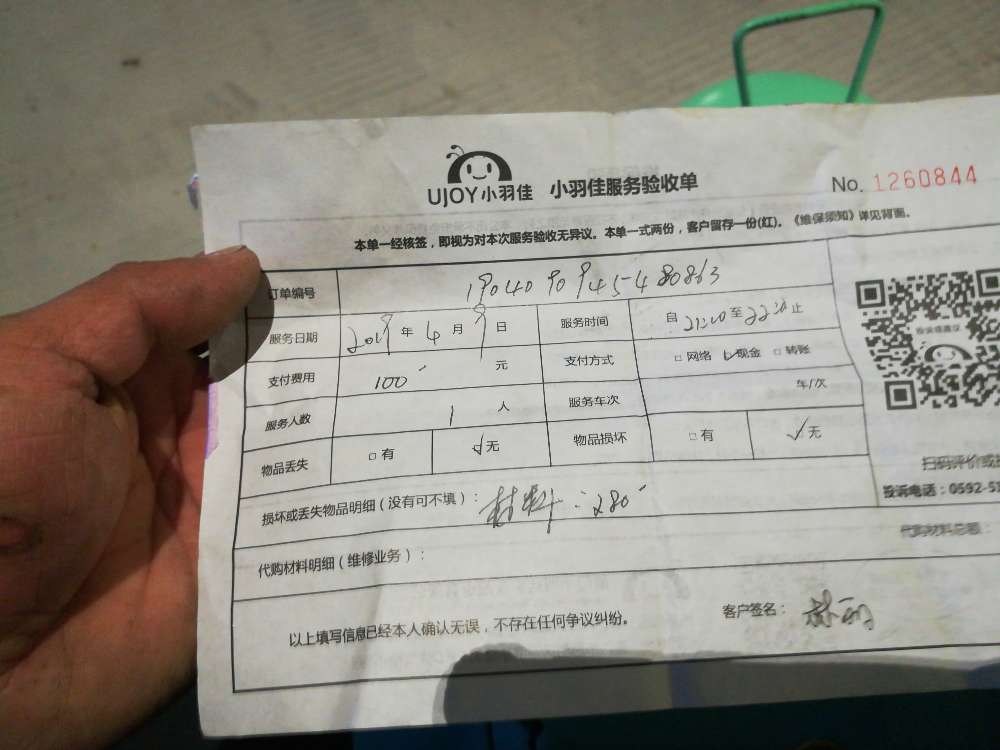 UJOY小羽佳 小羽佳服务验收单 No. 1260844
本单一经核签，即视为对本次服务验收无异议。本单一式两份，客户留存一份(红)。《维保须知》详见背面。
订单编号 1904090945480863
服务日期 2019年4月9日 服务时间 自21:20至22:20止
支付费用 100元 支付方式 □网络 ☑现金 □转账
服务人数 1人 服务车次 车/次
物品丢失 □有 ☑无 物品损坏 □有 ☑无
投诉或建议
扫码评价或
损坏或丢失物品明细（没有可不填）：材料：280
投诉电话：0592-51
代购材料明细（维修业务）：
代购材料总额：
以上填写信息已经本人确认无误，不存在任何争议纠纷。 客户签名：